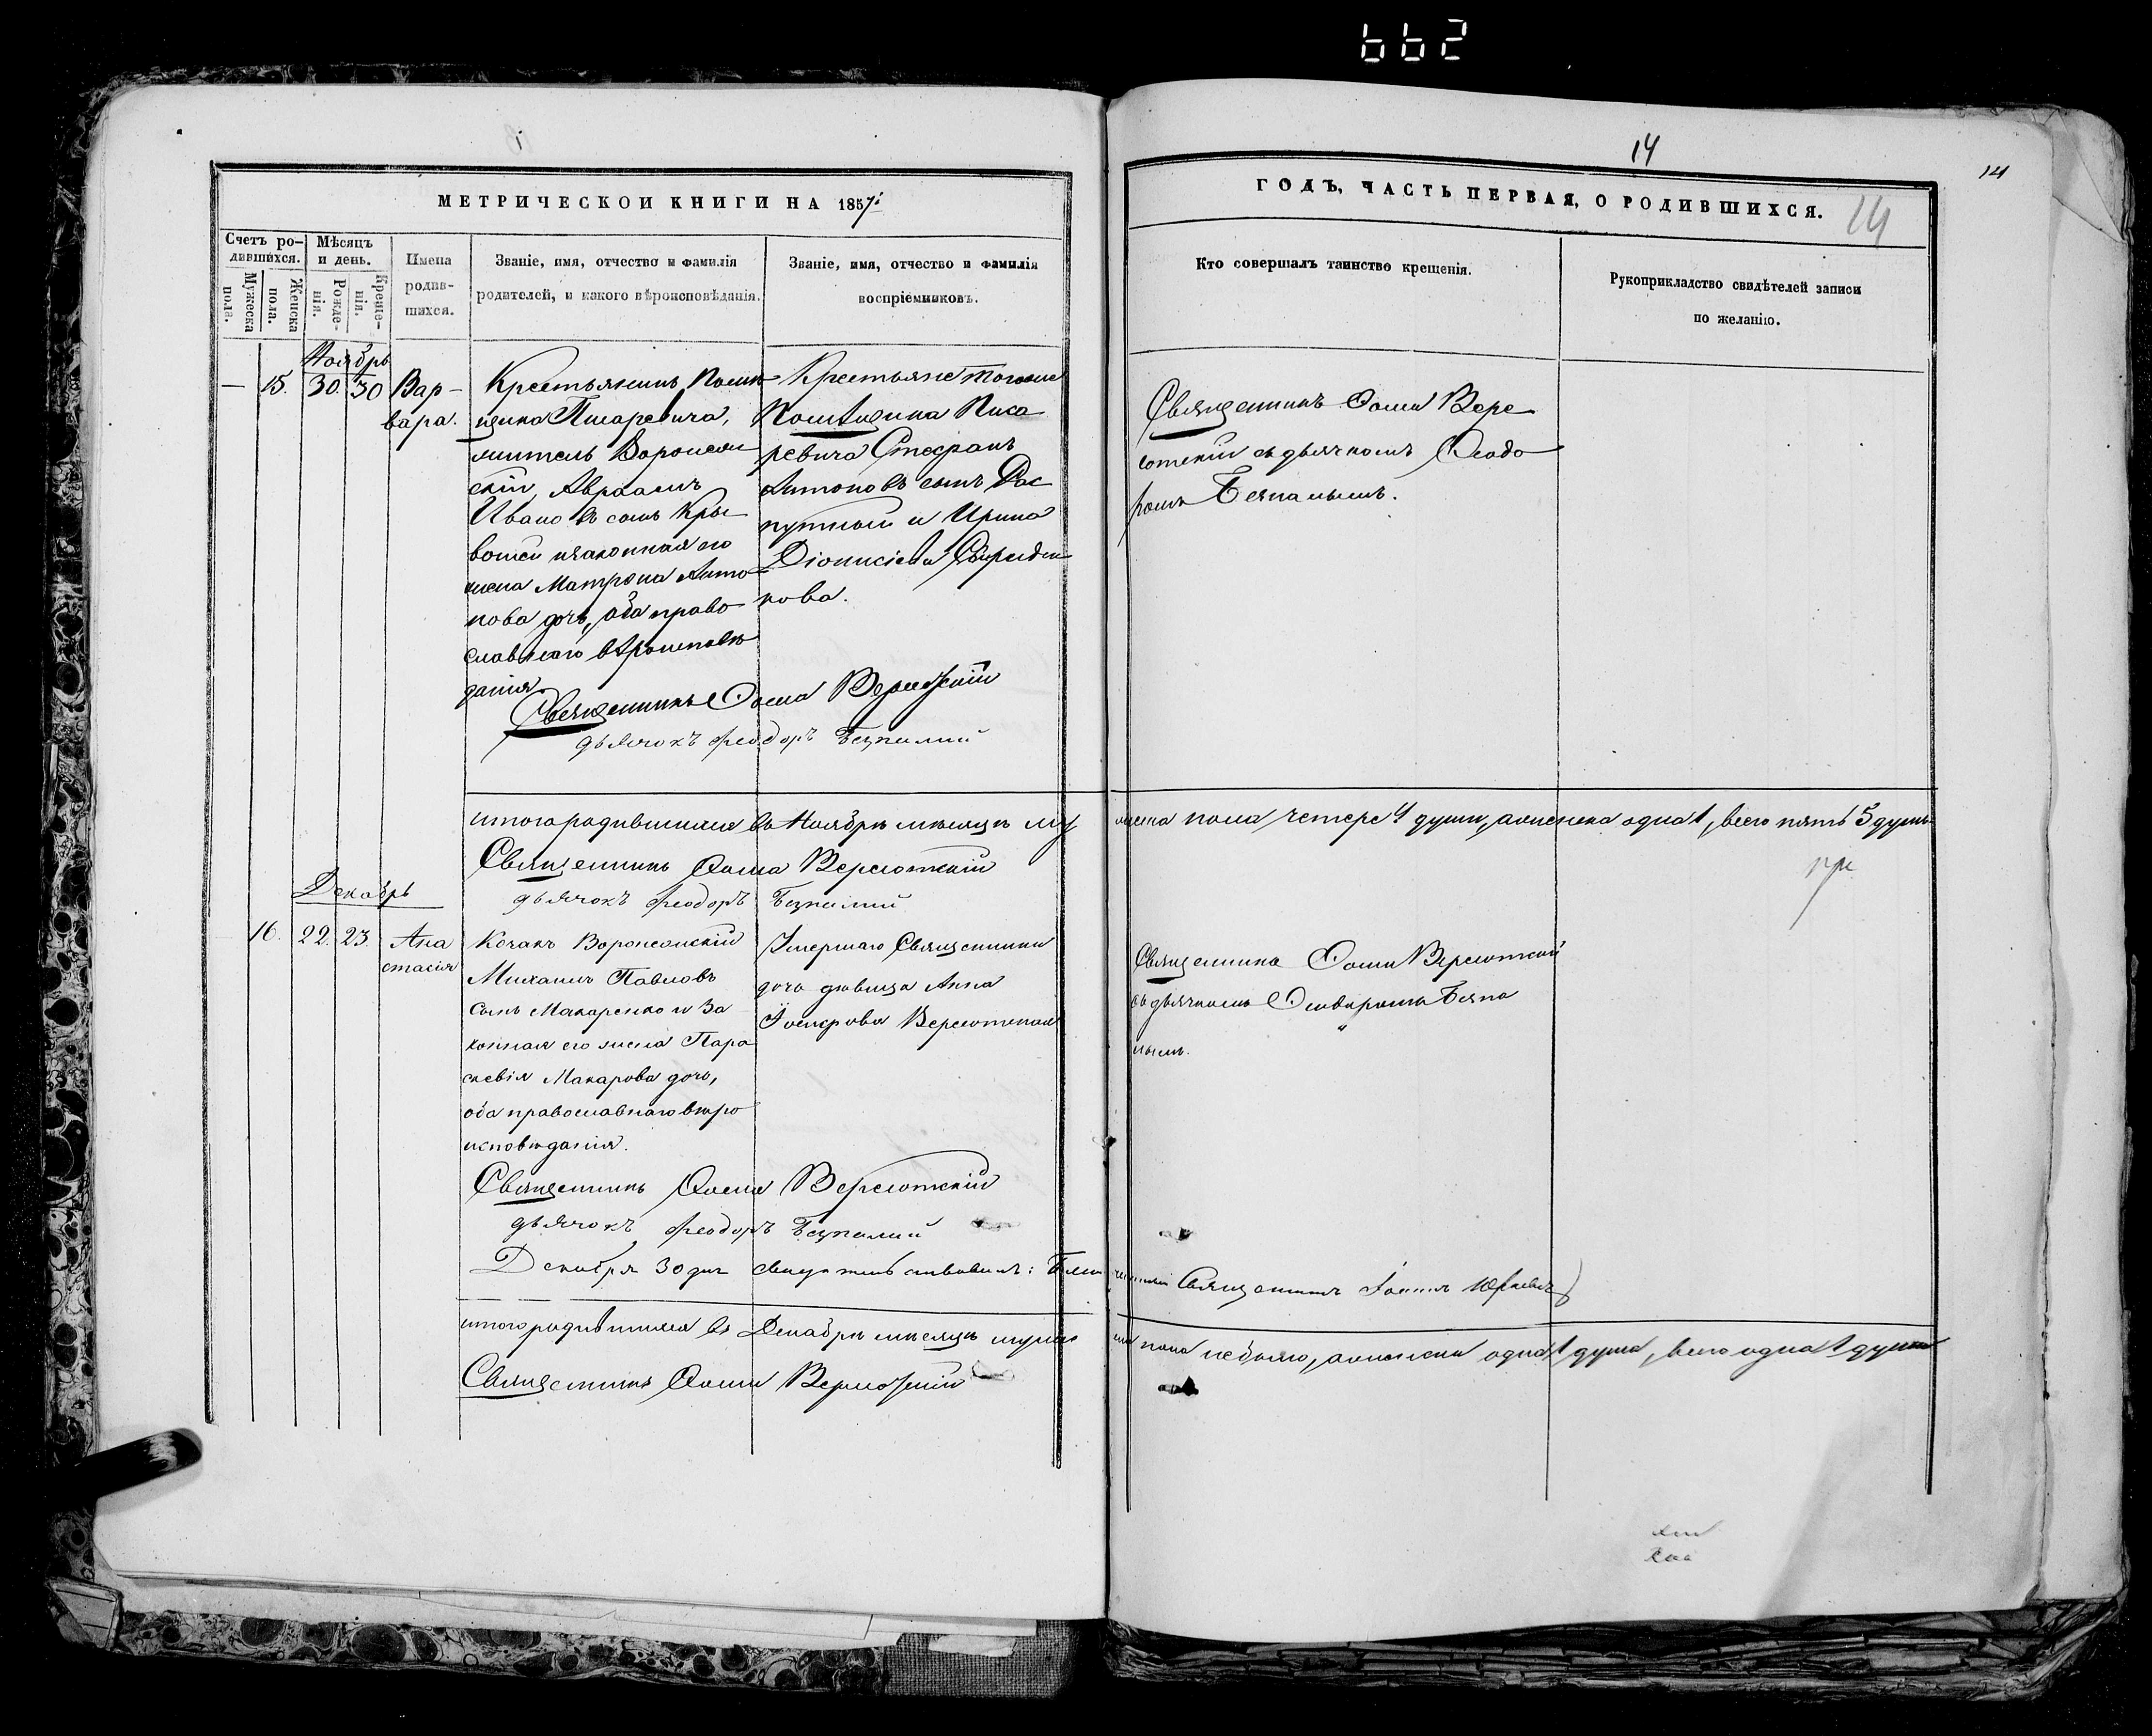 662
14
14
14
МЕТРИЧЕСКОЙ КНИГИ НА 1857й
ГОДЪ, ЧАСТЬ ПЕРВАЯ, О РОДИВШИХСЯ.
Счетъ ро-
дившихся.
Мужеска
пола.
Женска
пола.
Мѣсяцъ
и день.
Рожде-
нія.
Креще-
нія.
Имена
родив-
шихся.
Званіе, имя, отчество и фамилія
родителей, и какого вѣроисповѣданія.
Званіе, имя, отчество и фамилія
воспріемниковъ.
Кто совершалъ таинство крещенія.
Рукоприкладство свидѣтелей записи
по желанію.
Ноябрь
— 15. 30. 30
Вар-
вара.
Крестьянинъ Помѣ
щика Писаревича,
житель Воронеж
скій Авраамъ
Ивановъ сынъ
и законная его
жена Матрона Анто
нова дочь, оба право
славнаго вѣроисповѣ
данія.
Крестьяне тогоже
Помѣщика Писа
ревича Стефанъ
Антоновъ сынъ Рас
путный и Ирина
Діонисіева Свириден
кова.
Священникъ Ѳома Вере
сотскій съ дьячкомъ Ѳеодо
ромъ Безпалымъ.
Священникъ Ѳома Вересотскій
дьячокъ Феодоръ Безпалий
итого родившихся въ Ноябрѣ мѣсяцѣ му
жеска пола четере 4 души, а женска одна 1, всего пять 5 душъ
Священникъ Ѳома Вересотскій
дьячокъ Феодоръ Безпалий
Декабрь
16. 22. 23.
Ана
стасія
Козакъ Воронежскій
Михаилъ Павловъ
сынъ Макаренко и за
конная его жена Пара
скевія Макарова дочь,
оба православнаго вѣро
исповѣданія.
Умершаго Священника
дочь дѣвица Анна
Вересотская
Священникъ Ѳома Вересотскій
съ дьячкомъ Ѳеодоромъ Безпа
лымъ.
Священникъ Ѳома Вересотскій
дьячокъ Феодоръ Безпалий
Декабря 30 дня свидѣтельствовалъ: Благо
чинный Священникъ Іоаннъ
итого родившихся въ Декабрѣ мѣсяцѣ мужес
ка пола небыло, а женска одна 1 душа, всего одна 1 душа
Священникъ Ѳома Вересотскій